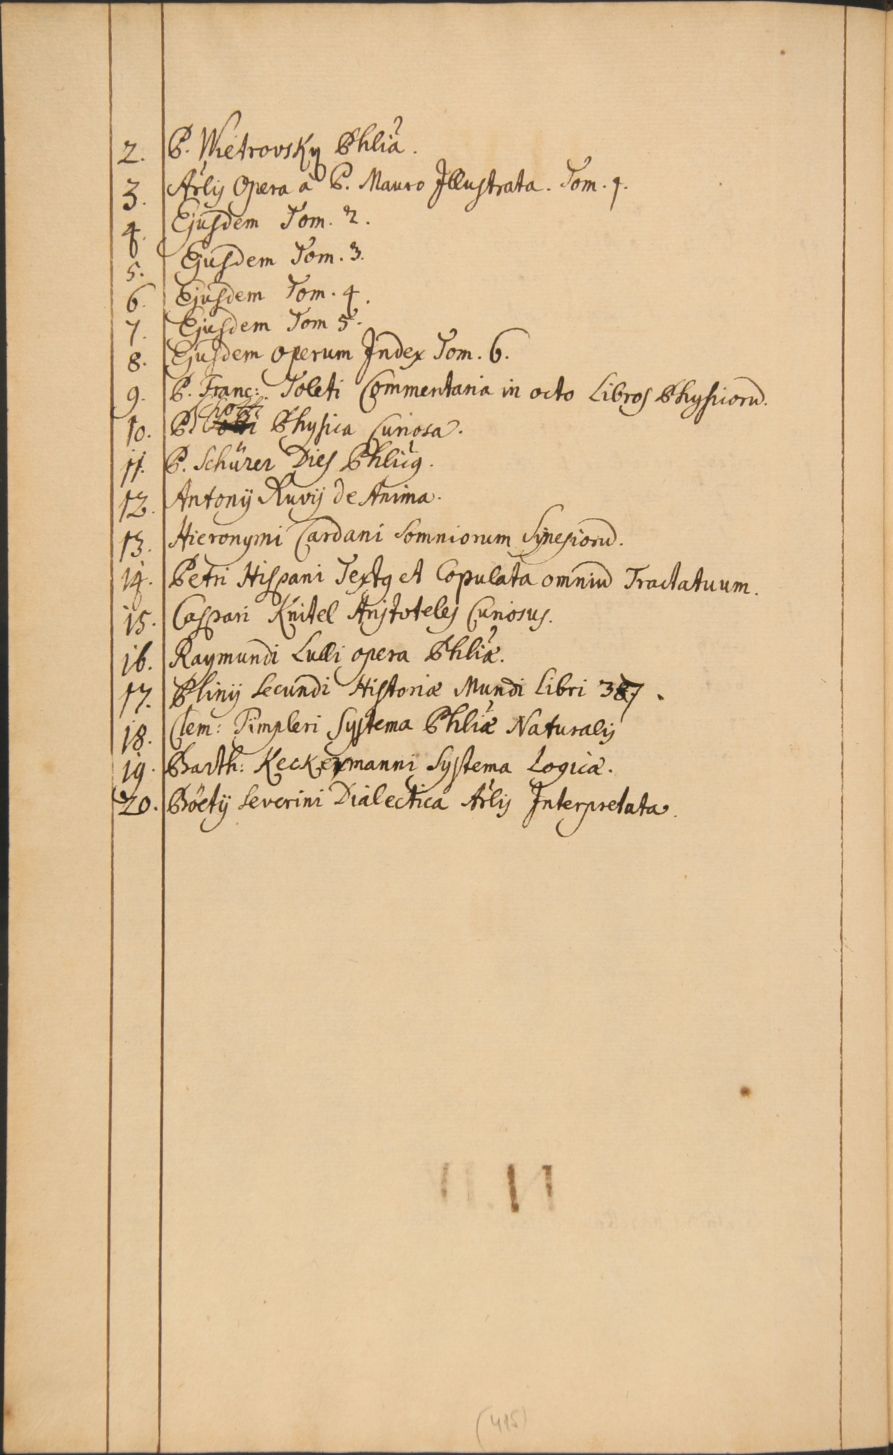 2. P. Wietrovsky Phlia.
3. Arlis Opera à P. Mauro Illustrata. Tom. 1.
4. Ejusdem Tom. 2.
5. Ejusdem Tom. 3.
6. Ejusdem Tom. 4.
7. Ejusdem Tom 5.
8. Ejusdem operum Index Tom. 6.
9. P. Franc: Toleti Commentaria in octo Libros Physicorū.
10. P. Physica Curiosa.
11. P. Schürer Dies Phlicg.
12. Antonij Ruvij de Anima.
13. Hieronymi Cardani Somniorum Synesiorū.
14. Petri Hispani Textg et Copulata omniū Tractatuum.
15. Caspari Knitel Aristoteles Curiosus.
16. Raymundi Lulli opera Phliæ.
17. Plinij Secundi Historiæ Mundi Libri 37.
18. Clem: Timpleri Systema Phliæ Naturalis
19. Barth: Keckermanni Systema Logicæ.
20. Böetij Severini Dialectica Arlis Interpretata.
(415)